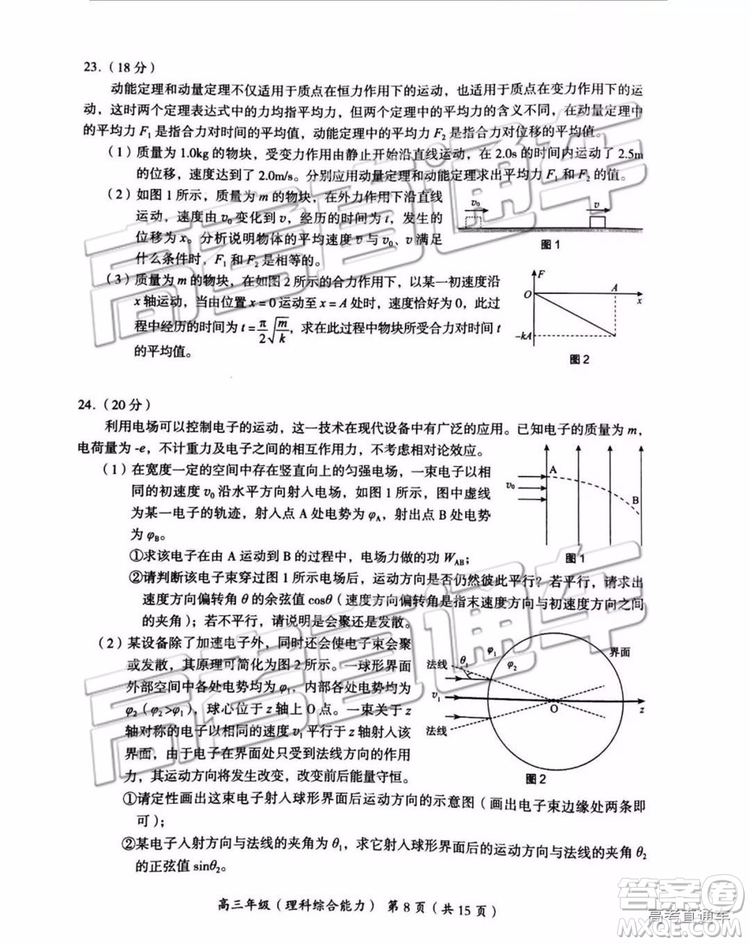 23.（18 分）
动能定理和动量定理不仅适用于质点在恒力作用下的运动，也适用于质点在变力作用下的运
动，这时两个定理表达式中的力均指平均力，但两个定理中的平均力的含义不同，在动量定理中
的平均力 F₁ 是指合力对时间的平均值，动能定理中的平均力 F₂ 是指合力对位移的平均值。
（1）质量为 1.0kg 的物块，受变力作用由静止开始沿直线运动，在 2.0s 的时间内运动了 2.5m
的位移，速度达到了 2.0m/s。分别应用动量定理和动能定理求出平均力 F₁ 和 F₂ 的值。
（2）如图 1 所示，质量为 m 的物块，在外力作用下沿直线
运动，速度由 v₀ 变化到 v，经历的时间为 t，发生的
位移为 x。分析说明物体的平均速度 v 与 v₀、v 满足
什么条件时，F₁ 和 F₂ 是相等的。
v₀
v
图 1
（3）质量为 m 的物块，在如图 2 所示的合力作用下，以某一初速度沿
x 轴运动，当由位置 x = 0 运动至 x = A 处时，速度恰好为 0，此过
程中经历的时间为 t = π/2 √(m/k)，求在此过程中物块所受合力对时间 t
的平均值。
F
O
A
x
-kA
图 2
24.（20 分）
利用电场可以控制电子的运动，这一技术在现代设备中有广泛的应用。已知电子的质量为 m，
电荷量为 -e，不计重力及电子之间的相互作用力，不考虑相对论效应。
（1）在宽度一定的空间中存在竖直向上的匀强电场，一束电子以相
同的初速度 v₀ 沿水平方向射入电场，如图 1 所示，图中虚线
为某一电子的轨迹，射入点 A 处电势为 φA，射出点 B 处电势
为 φB。
①求该电子在由 A 运动到 B 的过程中，电场力做的功 WAB；
A
v₀
B
图 1
②请判断该电子束穿过图 1 所示电场后，运动方向是否仍然彼此平行？若平行，请求出
速度方向偏转角 θ 的余弦值 cosθ（速度方向偏转角是指末速度方向与初速度方向之间
的夹角）；若不平行，请说明是会聚还是发散。
（2）某设备除了加速电子外，同时还会使电子束会聚
或发散，其原理可简化为图 2 所示。一球形界面
外部空间中各处电势均为 φ₁，内部各处电势均为
φ₂ (φ₂>φ₁)，球心位于 z 轴上 O 点。一束关于 z
轴对称的电子以相同的速度 v₁ 平行于 z 轴射入该
界面，由于电子在界面处只受到法线方向的作用
力，其运动方向将发生改变，改变前后能量守恒。
φ₁
φ₂
界面
法线
θ₁
v₁
O
z
法线
图 2
①请定性画出这束电子射入球形界面后运动方向的示意图（画出电子束边缘处两条即
可）；
②某电子入射方向与法线的夹角为 θ₁，求它射入球形界面后的运动方向与法线的夹角 θ₂
的正弦值 sinθ₂。
高三年级（理科综合能力） 第 8 页（共 15 页）
高考直通车
高考直通车
高考直通车